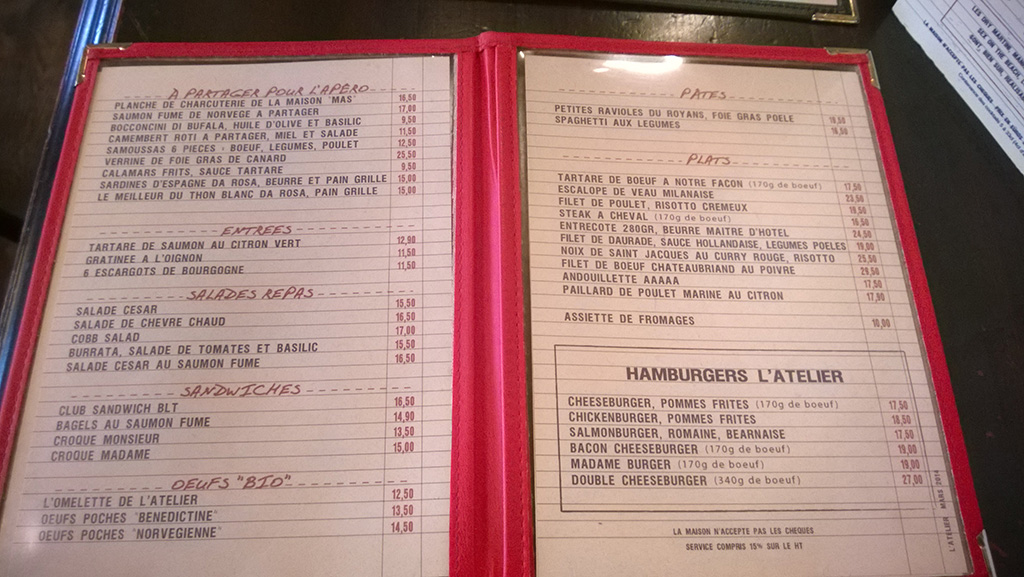 A PARTAGER POUR L'APERO
PLANCHE DE CHARCUTERIE DE LA MAISON "MAS" 16,50
SAUMON FUME DE NORVEGE A PARTAGER 17,00
BOCCONCINI DI BUFALA, HUILE D'OLIVE ET BASILIC 9,50
CAMEMBERT ROTI A PARTAGER, MIEL ET SALADE 11,50
SAMOUSSAS 6 PIECES : BOEUF, LEGUMES, POULET 12,50
VERRINE DE FOIE GRAS DE CANARD 25,50
CALAMARS FRITS, SAUCE TARTARE 9,50
SARDINES D'ESPAGNE DA ROSA, BEURRE ET PAIN GRILLE 15,00
LE MEILLEUR DU THON BLANC DA ROSA, PAIN GRILLE 15,00
ENTREES
TARTARE DE SAUMON AU CITRON VERT 12,90
GRATINEE A L'OIGNON 11,50
6 ESCARGOTS DE BOURGOGNE 11,50
SALADES REPAS
SALADE CESAR 15,50
SALADE DE CHEVRE CHAUD 16,50
COBB SALAD 17,00
BURRATA, SALADE DE TOMATES ET BASILIC 15,50
SALADE CESAR AU SAUMON FUME 16,50
SANDWICHES
CLUB SANDWICH BLT 16,50
BAGELS AU SAUMON FUME 14,90
CROQUE MONSIEUR 13,50
CROQUE MADAME 15,00
OEUFS "BIO"
L'OMELETTE DE L'ATELIER 12,50
OEUFS POCHES "BENEDICTINE" 13,50
OEUFS POCHES "NORVEGIENNE" 14,50
PATES
PETITES RAVIOLES DU ROYANS, FOIE GRAS POELE
SPAGHETTI AUX LEGUMES
PLATS
TARTARE DE BOEUF A NOTRE FACON (170g de boeuf) 17,50
ESCALOPE DE VEAU MILANAISE 23,50
FILET DE POULET, RISOTTO CREMEUX
STEAK A CHEVAL (170g de boeuf)
ENTRECOTE 280GR, BEURRE MAITRE D'HOTEL 24,50
FILET DE DAURADE, SAUCE HOLLANDAISE, LEGUMES POELES
NOIX DE SAINT JACQUES AU CURRY ROUGE, RISOTTO 25,50
FILET DE BOEUF CHATEAUBRIAND AU POIVRE
ANDOUILLETTE AAAAA 17,50
PAILLARD DE POULET MARINE AU CITRON
ASSIETTE DE FROMAGES 10,00
HAMBURGERS L'ATELIER
CHEESEBURGER, POMMES FRITES (170g de boeuf) 17,50
CHICKENBURGER, POMMES FRITES
SALMONBURGER, ROMAINE, BEARNAISE 17,50
BACON CHEESEBURGER (170g de boeuf) 19,00
MADAME BURGER (170g de boeuf) 19,00
DOUBLE CHEESEBURGER (340g de boeuf) 27,00
LA MAISON N'ACCEPTE PAS LES CHEQUES
SERVICE COMPRIS 15% SUR LE HT
L'ATELIER MARS 2014
LES DRY MARTINI
SEX ON THE BEACH
LA MAISON N'ACCEPTE PAS LES CHEQUES